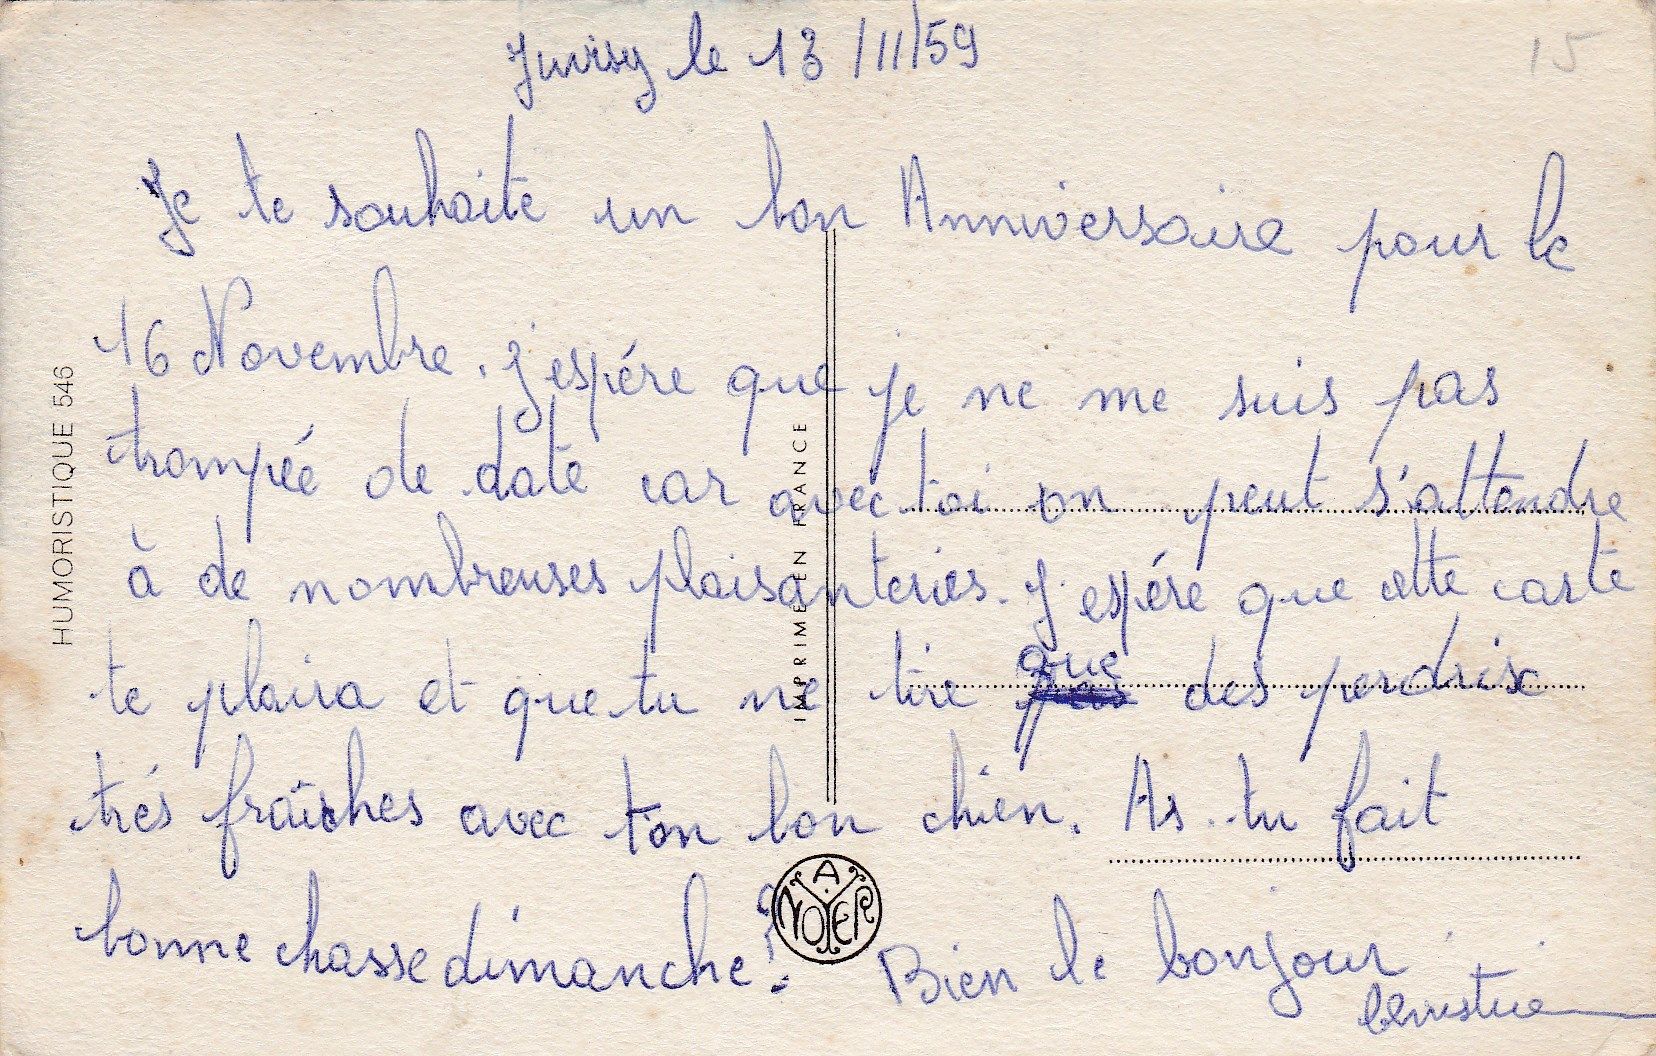 Juvisy le 13/11/59
15
Je te souhaite un bon Anniversaire pour le
16 Novembre. j'espére que je ne me suis pas
trompée de date car avec toi on peut s'attendre
à de nombreuses plaisanteries. J'espére que cette carte
te plaira et que tu ne tire que des perdrix
trés fraîches avec ton bon chien. As-tu fait
bonne chasse dimanche? Bien le bonjour
HUMORISTIQUE 546
IMPRIMÉ EN FRANCE
A NOYER